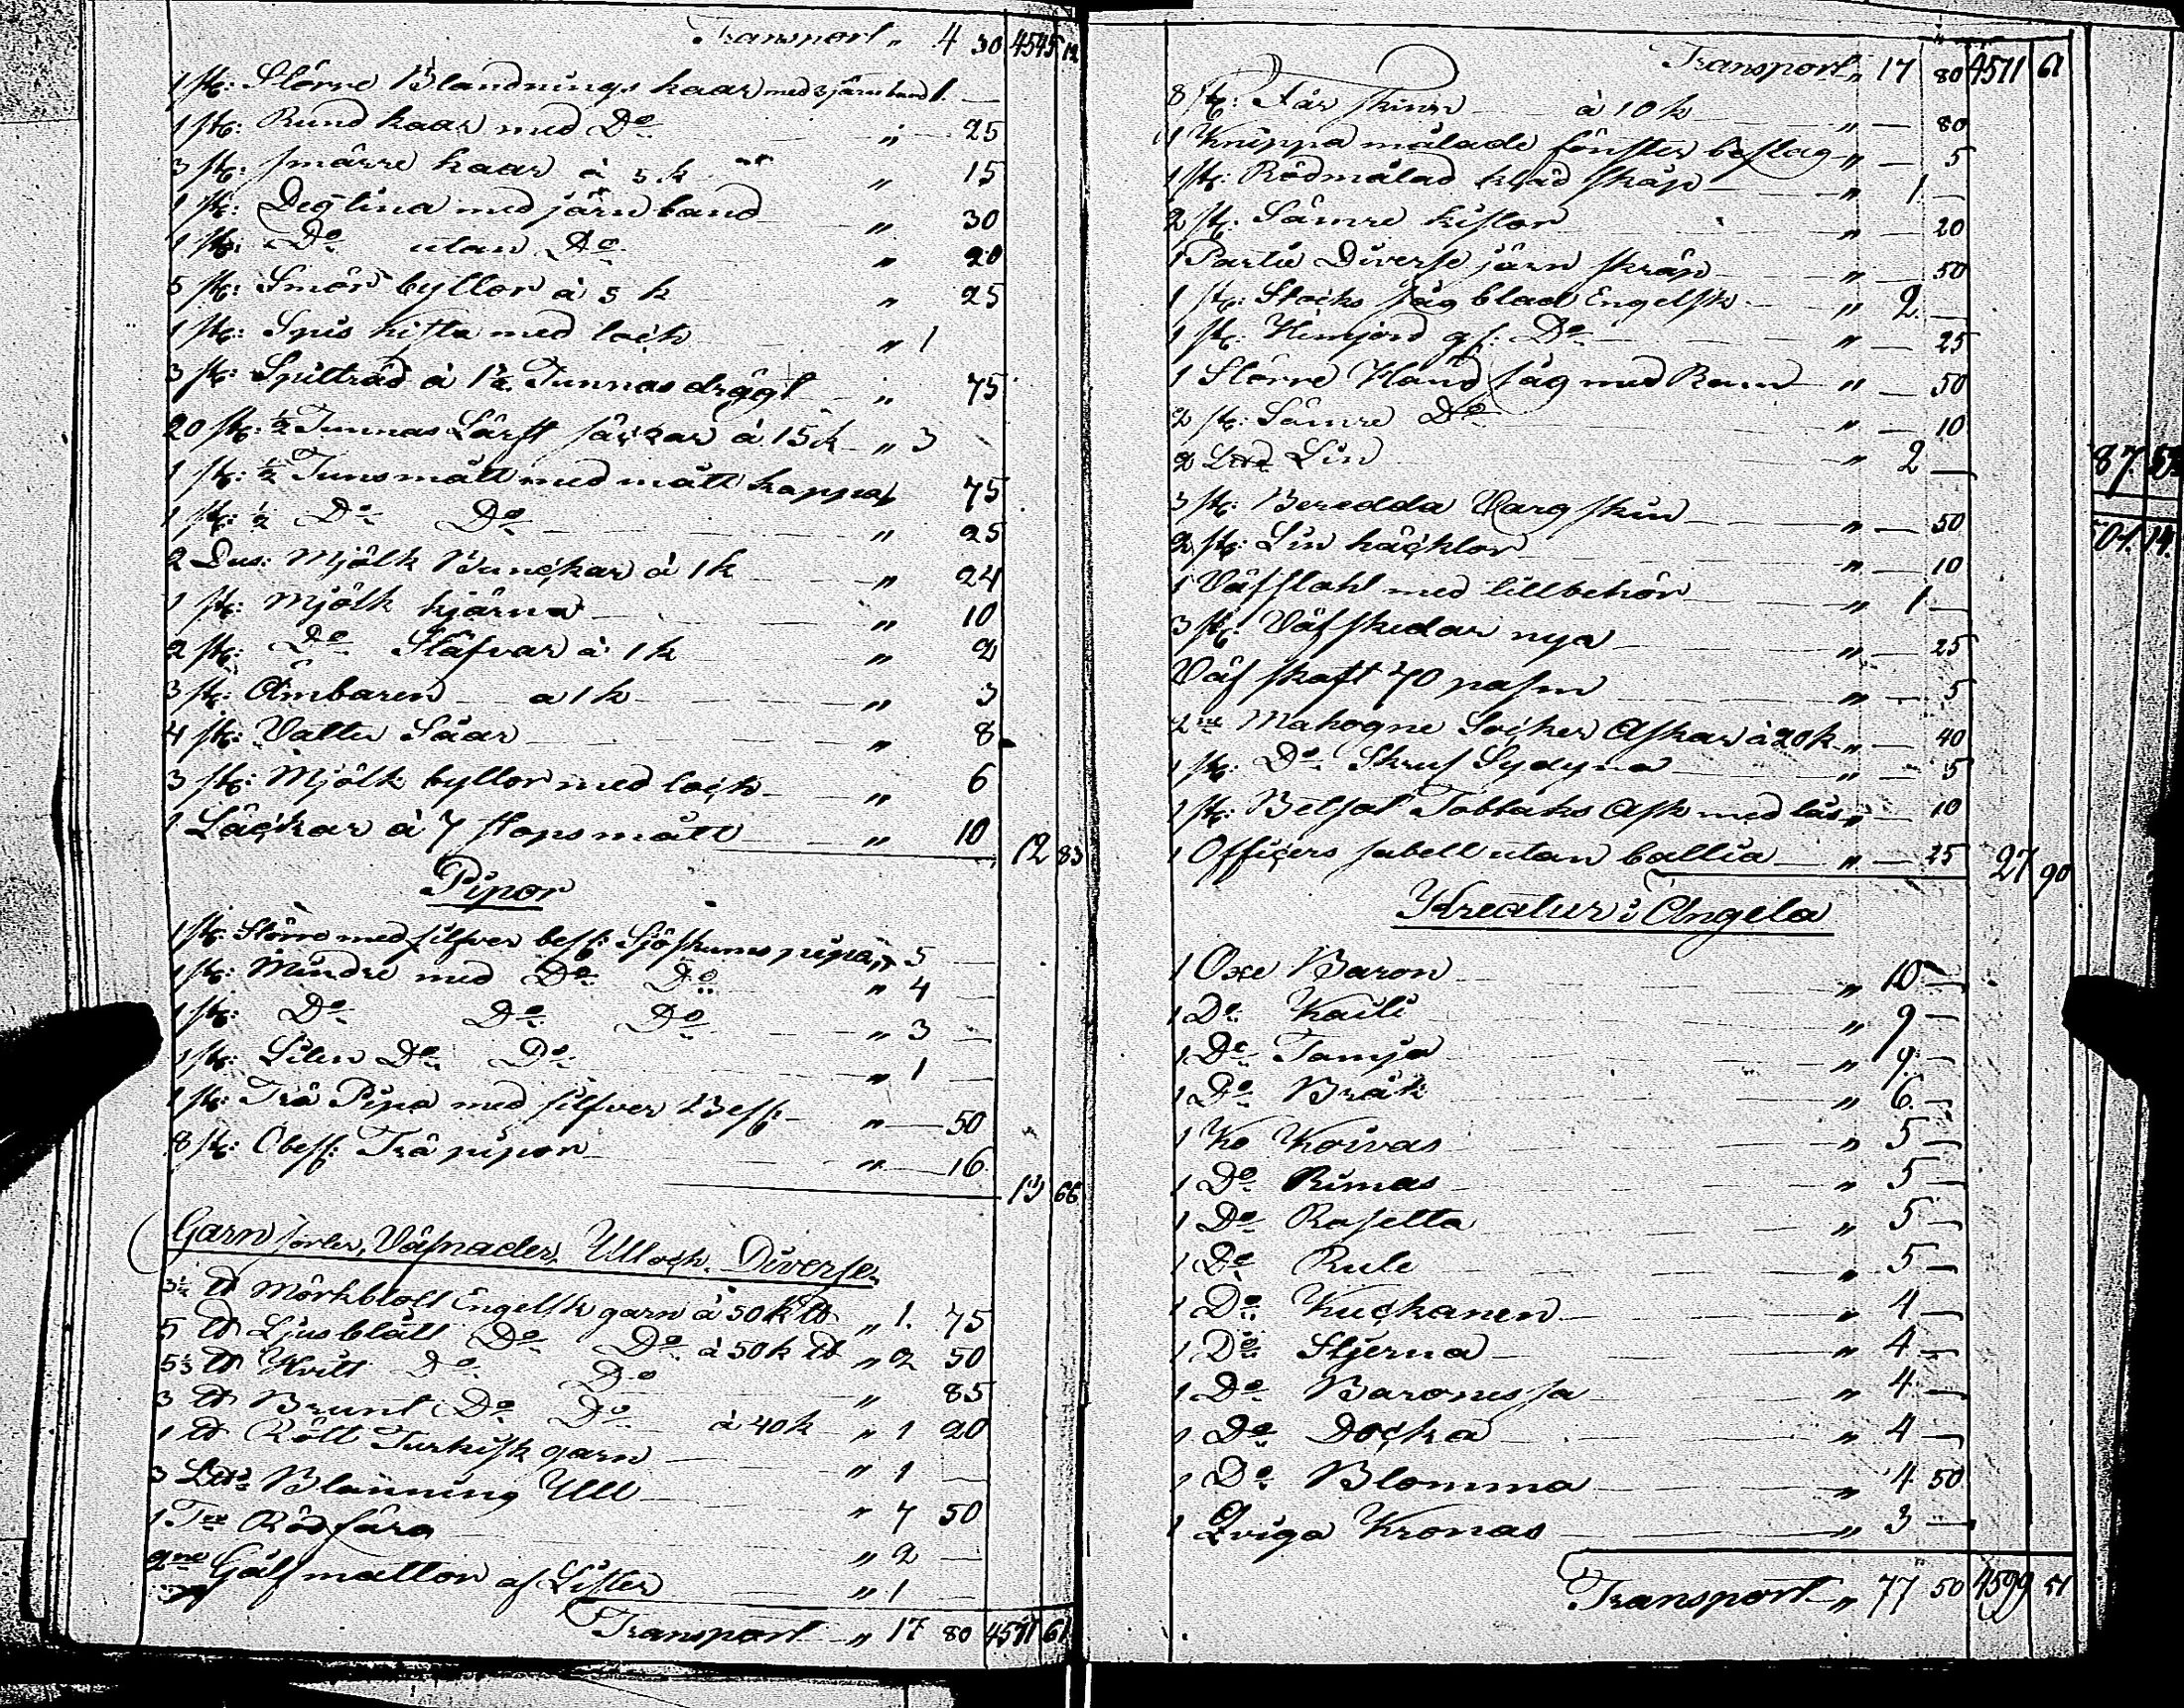 Transport „ 4 30 4545 12
1 st: Större Blandnings kaar med 3 järn band 1. —
1 st: Rund kaar med Do „ 25
3 st: smärre kaar à 5 k „ 15
1 st: Degtina med järn band „ 30
1 st: Do utan Do „ 20
5 st: Smör byttor à 5 k „ 25
1 st: Spis kista med lock „ 1
3 st: Spilträd à 1½ Tunnas drägt „ 75
20 st: ½ Tunnas Lärft säckar à 15 k „ 3
1 st: ½ Tunsmått med mått kappa „ 75
1 st: ½ Do Do „ 25
2 Dus: Mjölk Bunckar à 1 k „ 24
1 st: Mjölk kjärna „ 10
2 st: Do Stäfvar à 1 k „ 2
3 st: Ämbaren à 1 k „ 3
4 st: Vatten Såar „ 8
3 st: Mjölk byttor med lock „ 6
1 Läckar à 7 stops mått „ 10 12 83
Pipor
1 st: Större med silfver besl: Sjöskums pipa „ 5 —
1 st: Mindre med Do Do „ 4 —
1 st: Do Do Do „ 3 —
1 st: Liten Do Do „ 1 —
1 st: Trä Pipa med silfver Besl: „ — 50
8 st: Obesl: Trä pipor „ — 16 13 66
Garn sorter, Väfnader, Ull och Diverse
3½ ℔ Mörkblått Engelsk garn à 50 k ℔ „ 1. 75
5 ℔ Ljusblått Do Do à 50 k ℔ „ 2 50
5⅓ ℔ Hvitt Do Do „ 85
3 ℔ Brunt Do Do à 40 k „ 1 20
1 ℔ Rött Turkisk garn „ 1 —
3 L℔ Blanning Ull „ 7 50
1 Tna Rödfärg „ 2 —
2ne Gålf mattor af Lister „ 1 —
Transport „ 17 80 4571 61
Transport „ 17 80 4571 61
8 st: Får skinn à 10 k „ — 80
1 Knippa målade fönster beslag „ — 5
1 st: Rödmålad kläd skåp „ 1 —
2 st: Sämre kistor „ — 20
1 Parti Diverse järn skräp „ — 50
1 st: Stocks såg blad Engelsk „ 2 —
1 st: Himjord gl: Do „ — 25
1 Större Hand såg med Ram „ — 50
2 st: Sämre Do „ — 10
2 L℔ Lin „ 2 —
3 st: Beredda Varg skin „ — 50
2 st: Lin häcklor „ — 10
1 Väfstohl med tillbehör „ 1 —
3 st: Väfskedar nya „ — 25
Väf skaft 70 pasm „ — 5
2ne Mahogne Socker Askar à 20 k „ — 40
1 st: Do Skruf Sydyna „ — 5
1 st: Tobbaks Ask med lås „ — 10
1 Officers sabell utan ballia „ — 25 27 90
Kreatur i Ångela
1 Oxe Baron „ 10 —
1 Do Kaili „ 9 —
1 Do Tamja „ 9 —
1 Do Bräk „ 6 —
1 Ko Koivas „ 5 —
1 Do Rimas „ 5 —
1 Do Rosetta „ 5 —
1 Do Rule „ 5 —
1 Do Kuckanen „ 4 —
1 Do Stjerna „ 4 —
1 Do Baronessa „ 4 —
1 Do Docka „ 4 —
1 Do Blomma „ 4 50
1 Qviga Kronas „ 3 —
Transport „ 77 50 4599 51